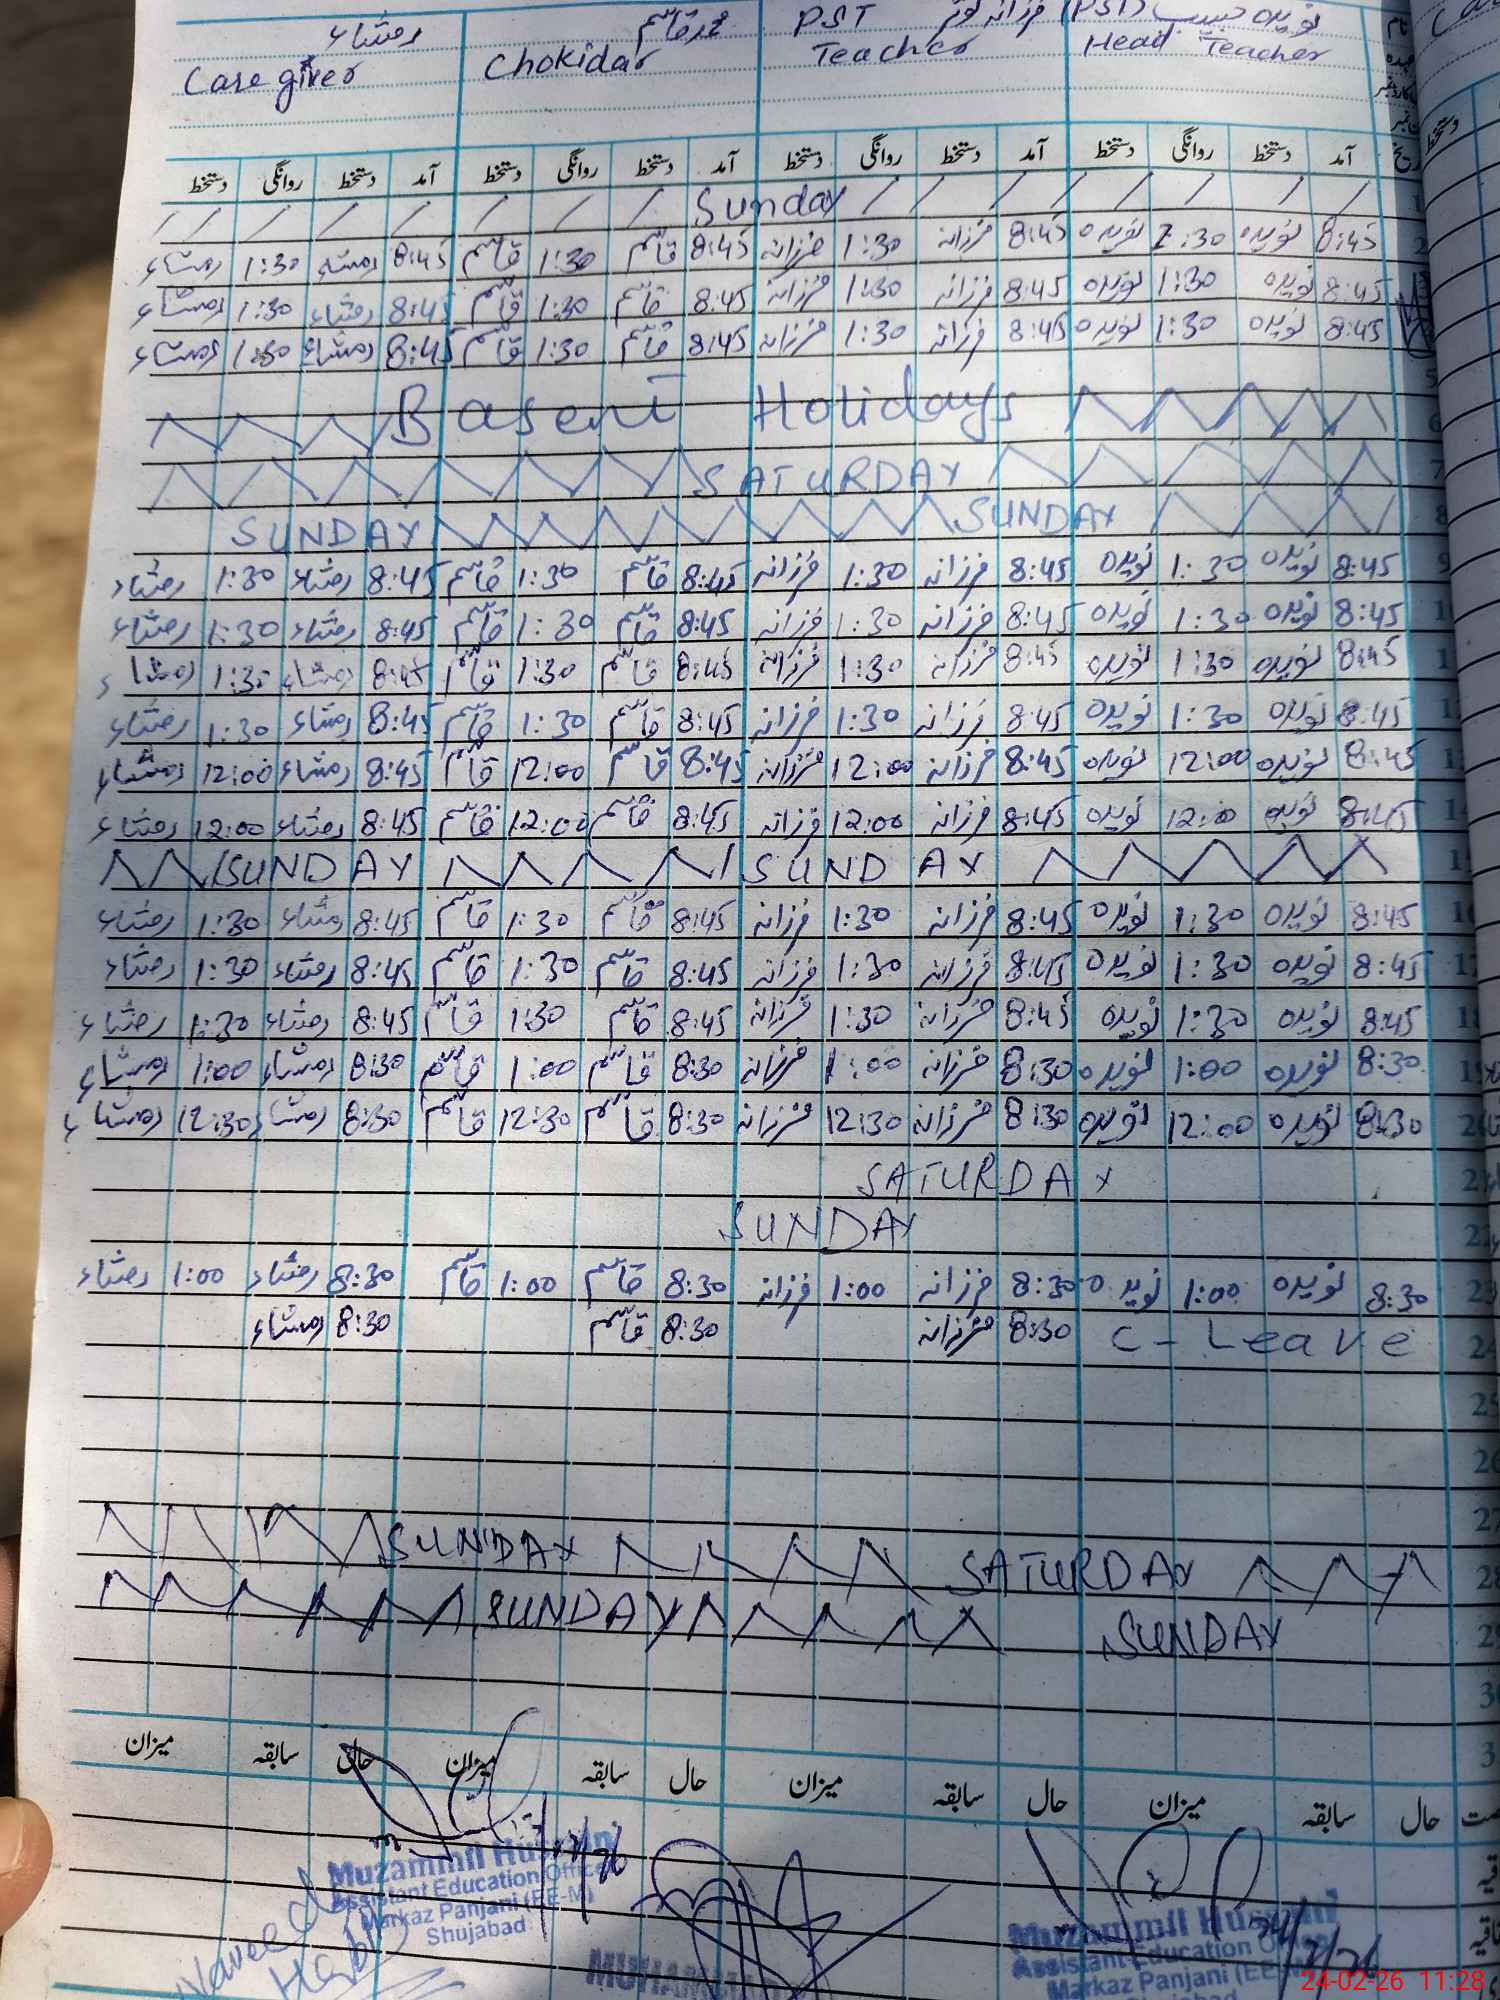 نویدہ حبیب (PST) فرزانہ کوثر PST محمد قاسم رمشاء
Head Teacher Teacher Chokidar Care giver
آمد دستخط روانگی دستخط آمد دستخط روانگی دستخط آمد دستخط روانگی دستخط آمد دستخط روانگی دستخط
Sunday
8:45 نویدہ 1:30 نویدہ 8:45 فرزانہ 1:30 فرزانہ 8:45 قاسم 1:30 قاسم 8:45 رمشاء 1:30 رمشاء
8:45 نویدہ 1:30 نویدہ 8:45 فرزانہ 1:30 فرزانہ 8:45 قاسم 1:30 قاسم 8:45 رمشاء 1:30 رمشاء
8:45 نویدہ 1:30 نویدہ 8:45 فرزانہ 1:30 فرزانہ 8:45 قاسم 1:30 قاسم 8:45 رمشاء 1:30 رمشاء
5
Basent Holidays 6
SATURDAY 7
SUNDAY SUNDAY 8
8:45 نویدہ 1:30 نویدہ 8:45 فرزانہ 1:30 فرزانہ 8:45 قاسم 1:30 قاسم 8:45 رمشاء 1:30 رمشاء
8:45 نویدہ 1:30 نویدہ 8:45 فرزانہ 1:30 فرزانہ 8:45 قاسم 1:30 قاسم 8:45 رمشاء 1:30 رمشاء
8:45 نویدہ 1:30 نویدہ 8:45 فرزانہ 1:30 فرزانہ 8:45 قاسم 1:30 قاسم 8:45 رمشاء 1:30 رمشاء
8:45 نویدہ 1:30 نویدہ 8:45 فرزانہ 1:30 فرزانہ 8:45 قاسم 1:30 قاسم 8:45 رمشاء 1:30 رمشاء
8:45 نویدہ 12:00 نویدہ 8:45 فرزانہ 12:00 فرزانہ 8:45 قاسم 12:00 قاسم 8:45 رمشاء 12:00 رمشاء
8:45 نویدہ 12:00 نویدہ 8:45 فرزانہ 12:00 فرزانہ 8:45 قاسم 12:00 قاسم 8:45 رمشاء 12:00 رمشاء
SUNDAY SUNDAY
8:45 نویدہ 1:30 نویدہ 8:45 فرزانہ 1:30 فرزانہ 8:45 قاسم 1:30 قاسم 8:45 رمشاء 1:30 رمشاء
8:45 نویدہ 1:30 نویدہ 8:45 فرزانہ 1:30 فرزانہ 8:45 قاسم 1:30 قاسم 8:45 رمشاء 1:30 رمشاء
8:45 نویدہ 1:30 نویدہ 8:45 فرزانہ 1:30 فرزانہ 8:45 قاسم 1:30 قاسم 8:45 رمشاء 1:30 رمشاء
8:30 نویدہ 1:00 نویدہ 8:30 فرزانہ 1:00 فرزانہ 8:30 قاسم 1:00 قاسم 8:30 رمشاء 1:00 رمشاء
8:30 نویدہ 12:00 نویدہ 8:30 فرزانہ 12:30 فرزانہ 8:30 قاسم 12:30 قاسم 8:30 رمشاء 12:30 رمشاء
SATURDAY
SUNDAY
8:30 نویدہ 1:00 نویدہ 8:30 فرزانہ 1:00 فرزانہ 8:30 قاسم 1:00 قاسم 8:30 رمشاء 1:00 رمشاء
24 C - Leave 8:30 فرزانہ 8:30 قاسم 8:30 رمشاء
25
26
27
SUNDAY SATURDAY 28
SUNDAY SUNDAY 29
حال سابقہ میزان حال سابقہ میزان حال سابقہ میزان حال سابقہ میزان
Muzammil Hussain
Assistant Education Officer
Markaz Panjani (EE-M)
Shujabad
Naveeda
Habib
Muzammil Hussain
Assistant Education Officer
Markaz Panjani (EE-M)
Shujabad
24-02-26 11:28